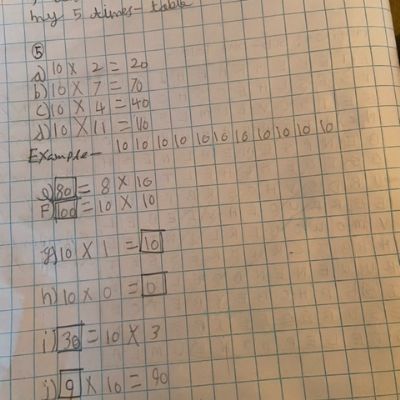 my 5 times-table
5
a) 10 X 2 = 20
b) 10 X 7 = 70
c) 10 X 4 = 40
d) 10 X 11 = 110
Example- 10 10 10 10 10 10 10 10 10 10 10
e) 80 = 8 X 10
F) 100 = 10 X 10
g) 10 X 1 = 10
h) 10 X 0 = 0
i) 30 = 10 X 3
j) 9 X 10 = 90